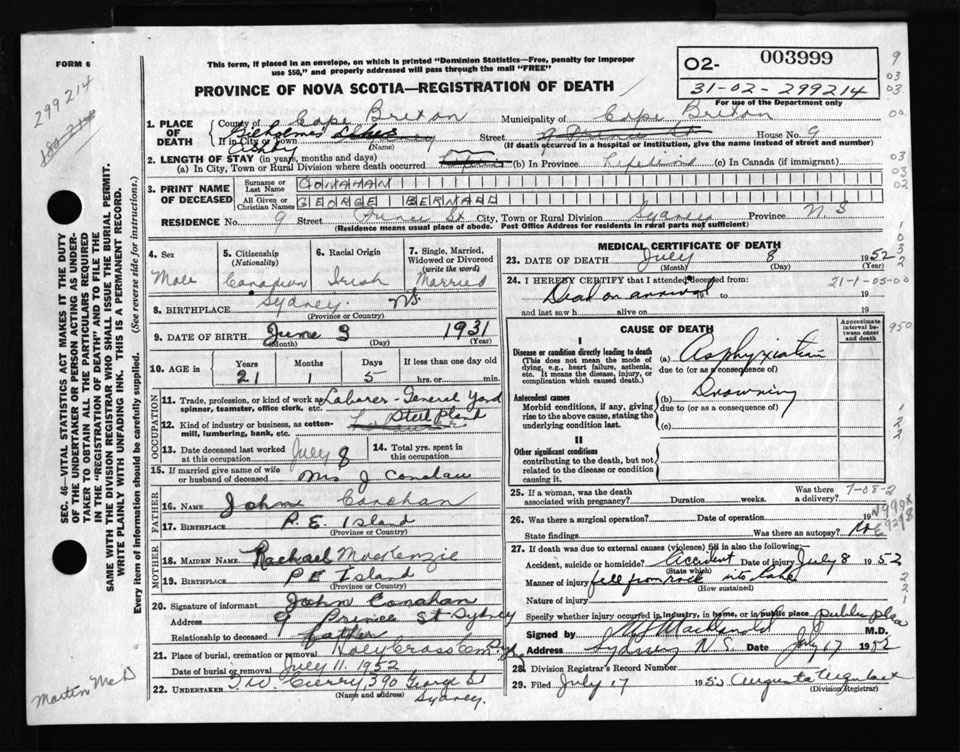 FORM 6
This form, if placed in an envelope, on which is printed "Dominion Statistics—Free, penalty for improper
use $50," and properly addressed will pass through the mail "FREE"
02- 003999
31-02-299214
For use of the Department only
PROVINCE OF NOVA SCOTIA—REGISTRATION OF DEATH
299214
1. PLACE OF DEATH
County of Cape Breton Municipality of Cape Breton
If in City or Town Sydney Street 9 Prince St House No. 9
(Name) (If death occurred in a hospital or institution, give the name instead of street and number)
2. LENGTH OF STAY (in years, months and days)
(a) In City, Town or Rural Division where death occurred (b) In Province Lifetime (c) In Canada (if immigrant)
3. PRINT NAME OF DECEASED
Surname or Last Name CONAHAN
All Given or Christian Names GEORGE BERNARD
RESIDENCE No. 9 Street Prince St City, Town or Rural Division Sydney Province N S
(Residence means usual place of abode. Post Office Address for residents in rural parts not sufficient)
4. Sex Male
5. Citizenship (Nationality) Canadian
6. Racial Origin Irish
7. Single, Married, Widowed or Divorced (write the word) Married
8. BIRTHPLACE Sydney NS.
(Province or Country)
9. DATE OF BIRTH June 3 1931
(Month) (Day) (Year)
10. AGE in Years 21 Months 1 Days 5 If less than one day hrs. or min.
OCCUPATION
11. Trade, profession, or kind of work as spinner, teamster, office clerk, etc. Laborer - General Yard
12. Kind of industry or business, as cotton-mill, lumbering, bank, etc. Steel Plant
13. Date deceased last worked at this occupation July 8
14. Total yrs. spent in this occupation
15. If married give name of wife or husband of deceased Mrs J Conahan
FATHER
16. NAME John Conahan
17. BIRTHPLACE P. E. Island
(Province or Country)
MOTHER
18. MAIDEN NAME Rachael MacKenzie
19. BIRTHPLACE P E Island
(Province or Country)
20. Signature of informant John Conahan
Address 9 Prince St Sydney
Relationship to deceased father
21. Place of burial, cremation or removal Holy Cross Cem. Syd
Date of burial or removal July 11. 1952
22. UNDERTAKER T. W. Curry, 390 George St
(Name and address) Sydney.
MEDICAL CERTIFICATE OF DEATH
23. DATE OF DEATH July 8 1952
(Month) (Day) (Year)
24. I HEREBY CERTIFY that I attended deceased from
Dead on arrival 19 to 19
and last saw h alive on 19
21-1-05-00
CAUSE OF DEATH
Approximate interval between onset and death
I
Disease or condition directly leading to death
(This does not mean the mode of dying, e.g., heart failure, asthenia, etc. It means the disease, injury, or complication which caused death.)
(a) Asphyxiation
due to (or as a consequence of)
Antecedent causes
Morbid conditions, if any, giving rise to the above cause, stating the underlying condition last.
(b) Drowning
due to (or as a consequence of)
(c)
II
Other significant conditions
contributing to the death, but not related to the disease or condition causing it.
25. If a woman, was the death associated with pregnancy? Duration weeks. Was there a delivery? 7-08-2
26. Was there a surgical operation? Date of operation 19
State findings Was there an autopsy? No
27. If death was due to external causes (violence) fill in also the following:—
Accident, suicide or homicide? Accident Date of injury July 8 1952
(State which)
Manner of injury fell from rock into lake
(How sustained)
Nature of injury
Specify whether injury occurred in industry, in home, or in public place public place
Signed by M.D.
Address Sydney N. S. Date July 17 1952
28. Division Registrar's Record Number
29. Filed July 17 1952
(Division Registrar)
SEC. 46—VITAL STATISTICS ACT MAKES IT THE DUTY
OF THE UNDERTAKER OR PERSON ACTING AS UNDER-
TAKER TO OBTAIN ALL THE PARTICULARS REQUIRED
IN THE "REGISTRATION OF DEATH" AND TO FILE THE
SAME WITH THE DIVISION REGISTRAR WHO SHALL ISSUE THE BURIAL PERMIT.
WRITE PLAINLY WITH UNFADING INK. THIS IS A PERMANENT RECORD.
Every item of information should be carefully supplied. (See reverse side for instructions.)
Martin McD